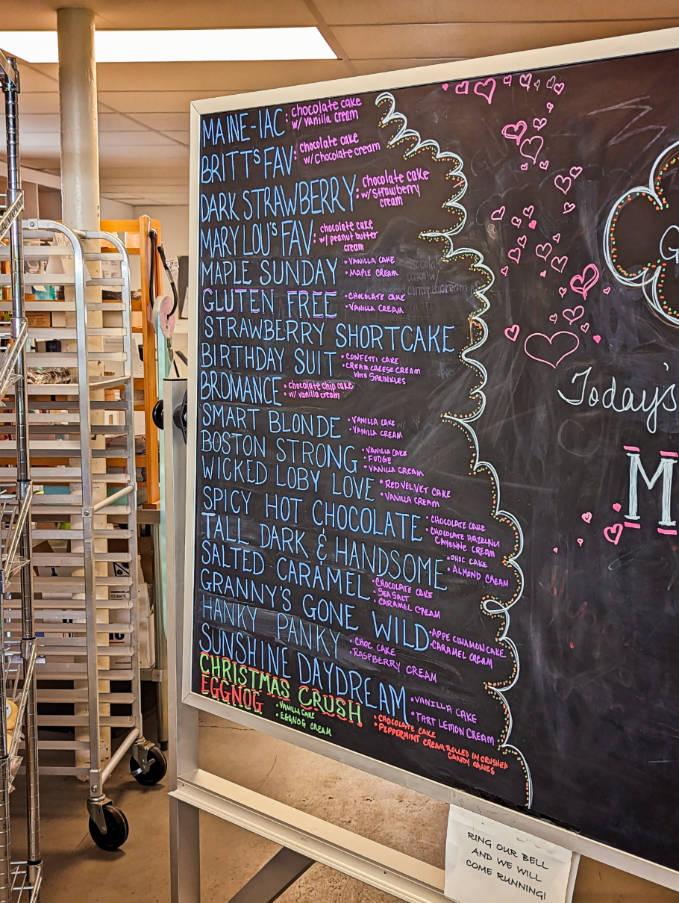 MAINE-IAC: chocolate cake
w/ vanilla cream
BRITT'S FAV: chocolate cake
w/ chocolate cream
DARK STRAWBERRY: chocolate cake
w/ strawberry
cream
MARY LOU'S FAV: chocolate cake
w/ peanut butter
cream
MAPLE SUNDAY • VANILLA CAKE
• MAPLE CREAM
GLUTEN FREE • CHOCOLATE CAKE
• VANILLA CREAM
STRAWBERRY SHORTCAKE
BIRTHDAY SUIT • CONFETTI CAKE
• CREAM CHEESE CREAM
WITH SPRINKLES
BROMANCE • chocolate chip cake
w/ vanilla cream
SMART BLONDE • VANILLA CAKE
• VANILLA CREAM
BOSTON STRONG • VANILLA CAKE
• FUDGE
• VANILLA CREAM
WICKED LOBY LOVE • RED VELVET CAKE
• VANILLA CREAM
SPICY HOT CHOCOLATE • CHOCOLATE CAKE
• CHOCOLATE HAZELNUT
CAYENNE CREAM
TALL DARK & HANDSOME • CHOC CAKE
• ALMOND CREAM
SALTED CARAMEL • CHOCOLATE CAKE
• SEA SALT
• CARAMEL CREAM
GRANNY'S GONE WILD • APPE CINAMON CAKE
• CARAMEL CREAM
HANKY PANKY • CHOC CAKE
• RASPBERRY CREAM
SUNSHINE DAYDREAM • VANILLA CAKE
• TART LEMON CREAM
CHRISTMAS CRUSH • CHOCOLATE CAKE
• PEPPERMINT CREAM ROLLED IN CRUSHED
CANDY CANES
EGGNOG • VANILLA CAKE
• EGGNOG CREAM
G
Today's
M
RING OUR BELL
AND WE WILL
COME RUNNING!